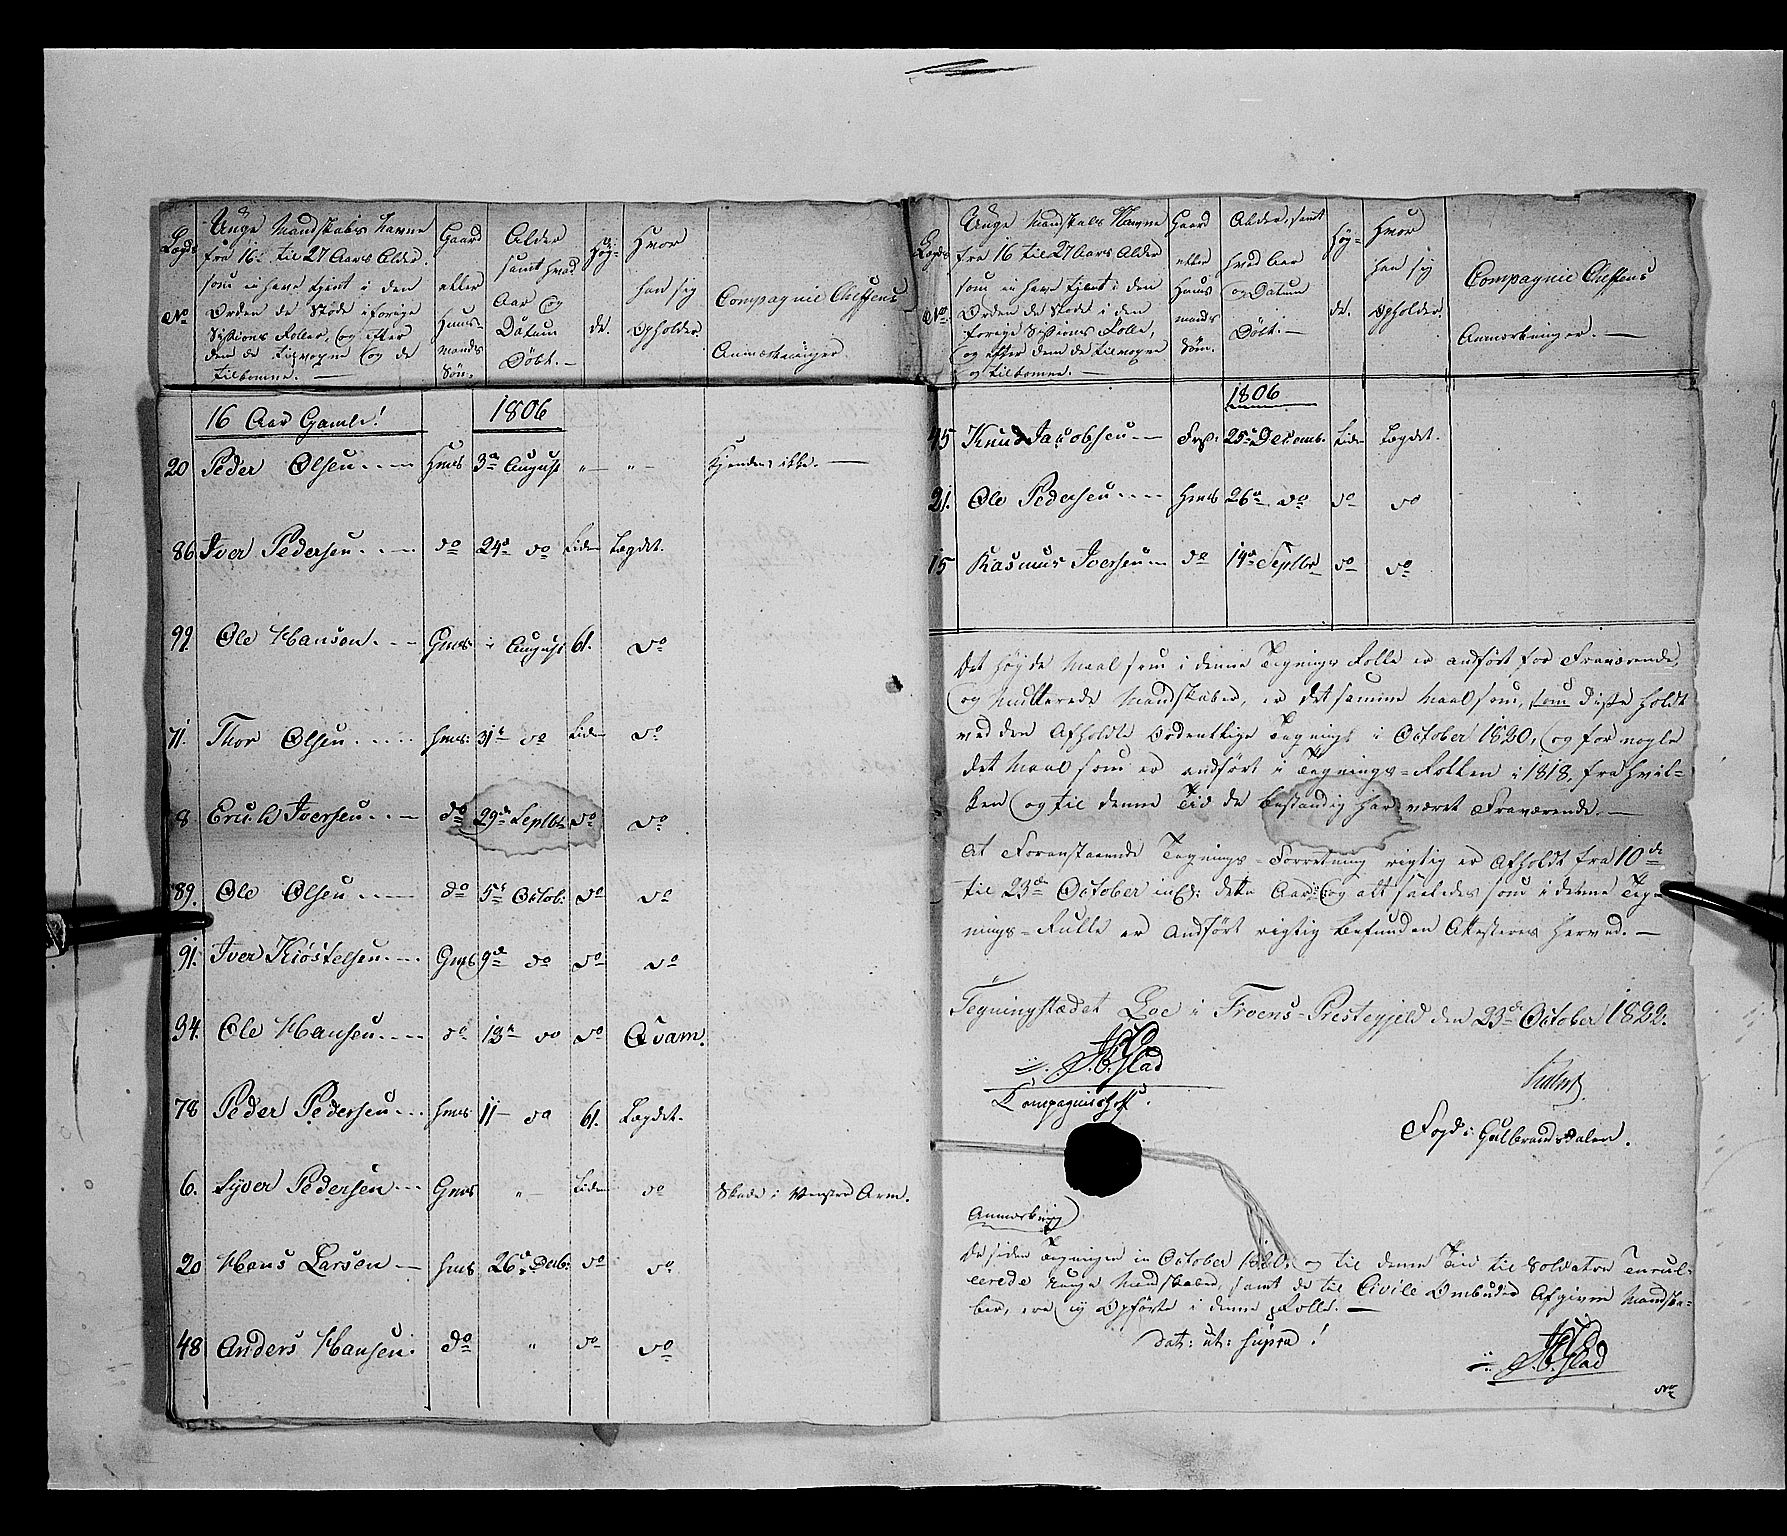 Lægds
No
Unge Mandskabs Navne
fra 16 til 27 Aars Alder
som ei have tient i den
Orden de Stode i forige
Sessions Roller, og efter
dem de tilvoxne og de
tilkomne. —
Gaard
eller
Huus-
mands
Søn.
Alder
samt hvad
Aar og
Datum
Døbt. —
Høy-
de.
Hvor
han sig
Opholder
Compagnie Cheffens
Anmærkninger.
16 Aar Gamle!
1806
20 Peder Olsen Hms 3de August " — " — Kjendes ikke. —
86 Iver Pedersen do 24de do Liden Lægdet.
99. Ole Hanson Gms August 61. do
71. Thor Olsen Hms: 31te do Liden do
8 Iversen do 29de Septbr do do
89. Ole Olsen do 5te Octob: do do
91. Iver Kiøstelsen Gms 9de do do do
94. Ole Hansen do 13de do do Qvam.
78 Peder Pedersen Hms 11 — do 61. Lægdet.
6. Syver Pedersen Gms " — Liden do Skade i Venstre Arm.
20 Hans Larsen — Hms 26de Decb: do do
48 Anders Hansen. do " do do
Lægds
No
Unge Mandskabs Navne
fra 16 til 27 Aars Alder
som ei have tient i den
Orden de Stode i den
forige Sessions Rolle,
og efter dem de tilvoxne
og tilkomne. —
Gaard
eller
Huus
mands
Søn.
Alder, samt
hvad Aar
og Datum
Døbt. —
Høy-
de.
Hvor
han sig
Opholder
Compagnie Cheffens
Anmærkninger. —
1806
45 Knud Jacobsen — 25de Decemb. Liden Lægdet.
21. Ole Pedersen Hms 26de do do do
15 Rasmus Iversen do 14de Septbr do do
Det høyde Maal som i denne Tegnings Rolle er andført for Fraværende,
og Mandskaber, er det samme Maal som, som disse holdt
ved den Afholdte Ordentlige Tegning i October 1820, og for nogle
det Maal som er andført i Tegnings-Rollen i 1818, fra hvil-
ken og til denne Tid de bestandig har været Fraværende. —
At Foranstaaende Tegnings-Forretning rigtig er Afholdt fra 10de
til 23de October incl: dette Aar, og alt saaledes som i denne Teg-
nings-Rulle er Andført rigtig befunden Attesteres herved. —
Tegningstædet Loe i Froens-Prestegjeld den 23de October 1822.
Compagniechef.
Foged i Gulbrandsdalen.
Anmærkning
De siden Tegningen in October 1820. og til denne Tid til Soldater Enroul-
lerede unge Mandskaber, samt de til Civile Ombuder Afgivne Mandska-
ber, ere ej Opførte i denne Rolle. —
dat: ut: supra!